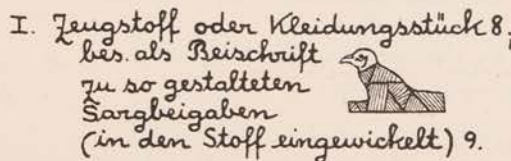 I. Zeugstoff oder Kleidungsstück 8,
bes. als Beischrift
zu so gestalteten
Sargbeigaben
(in den Stoff eingewickelt) 9.